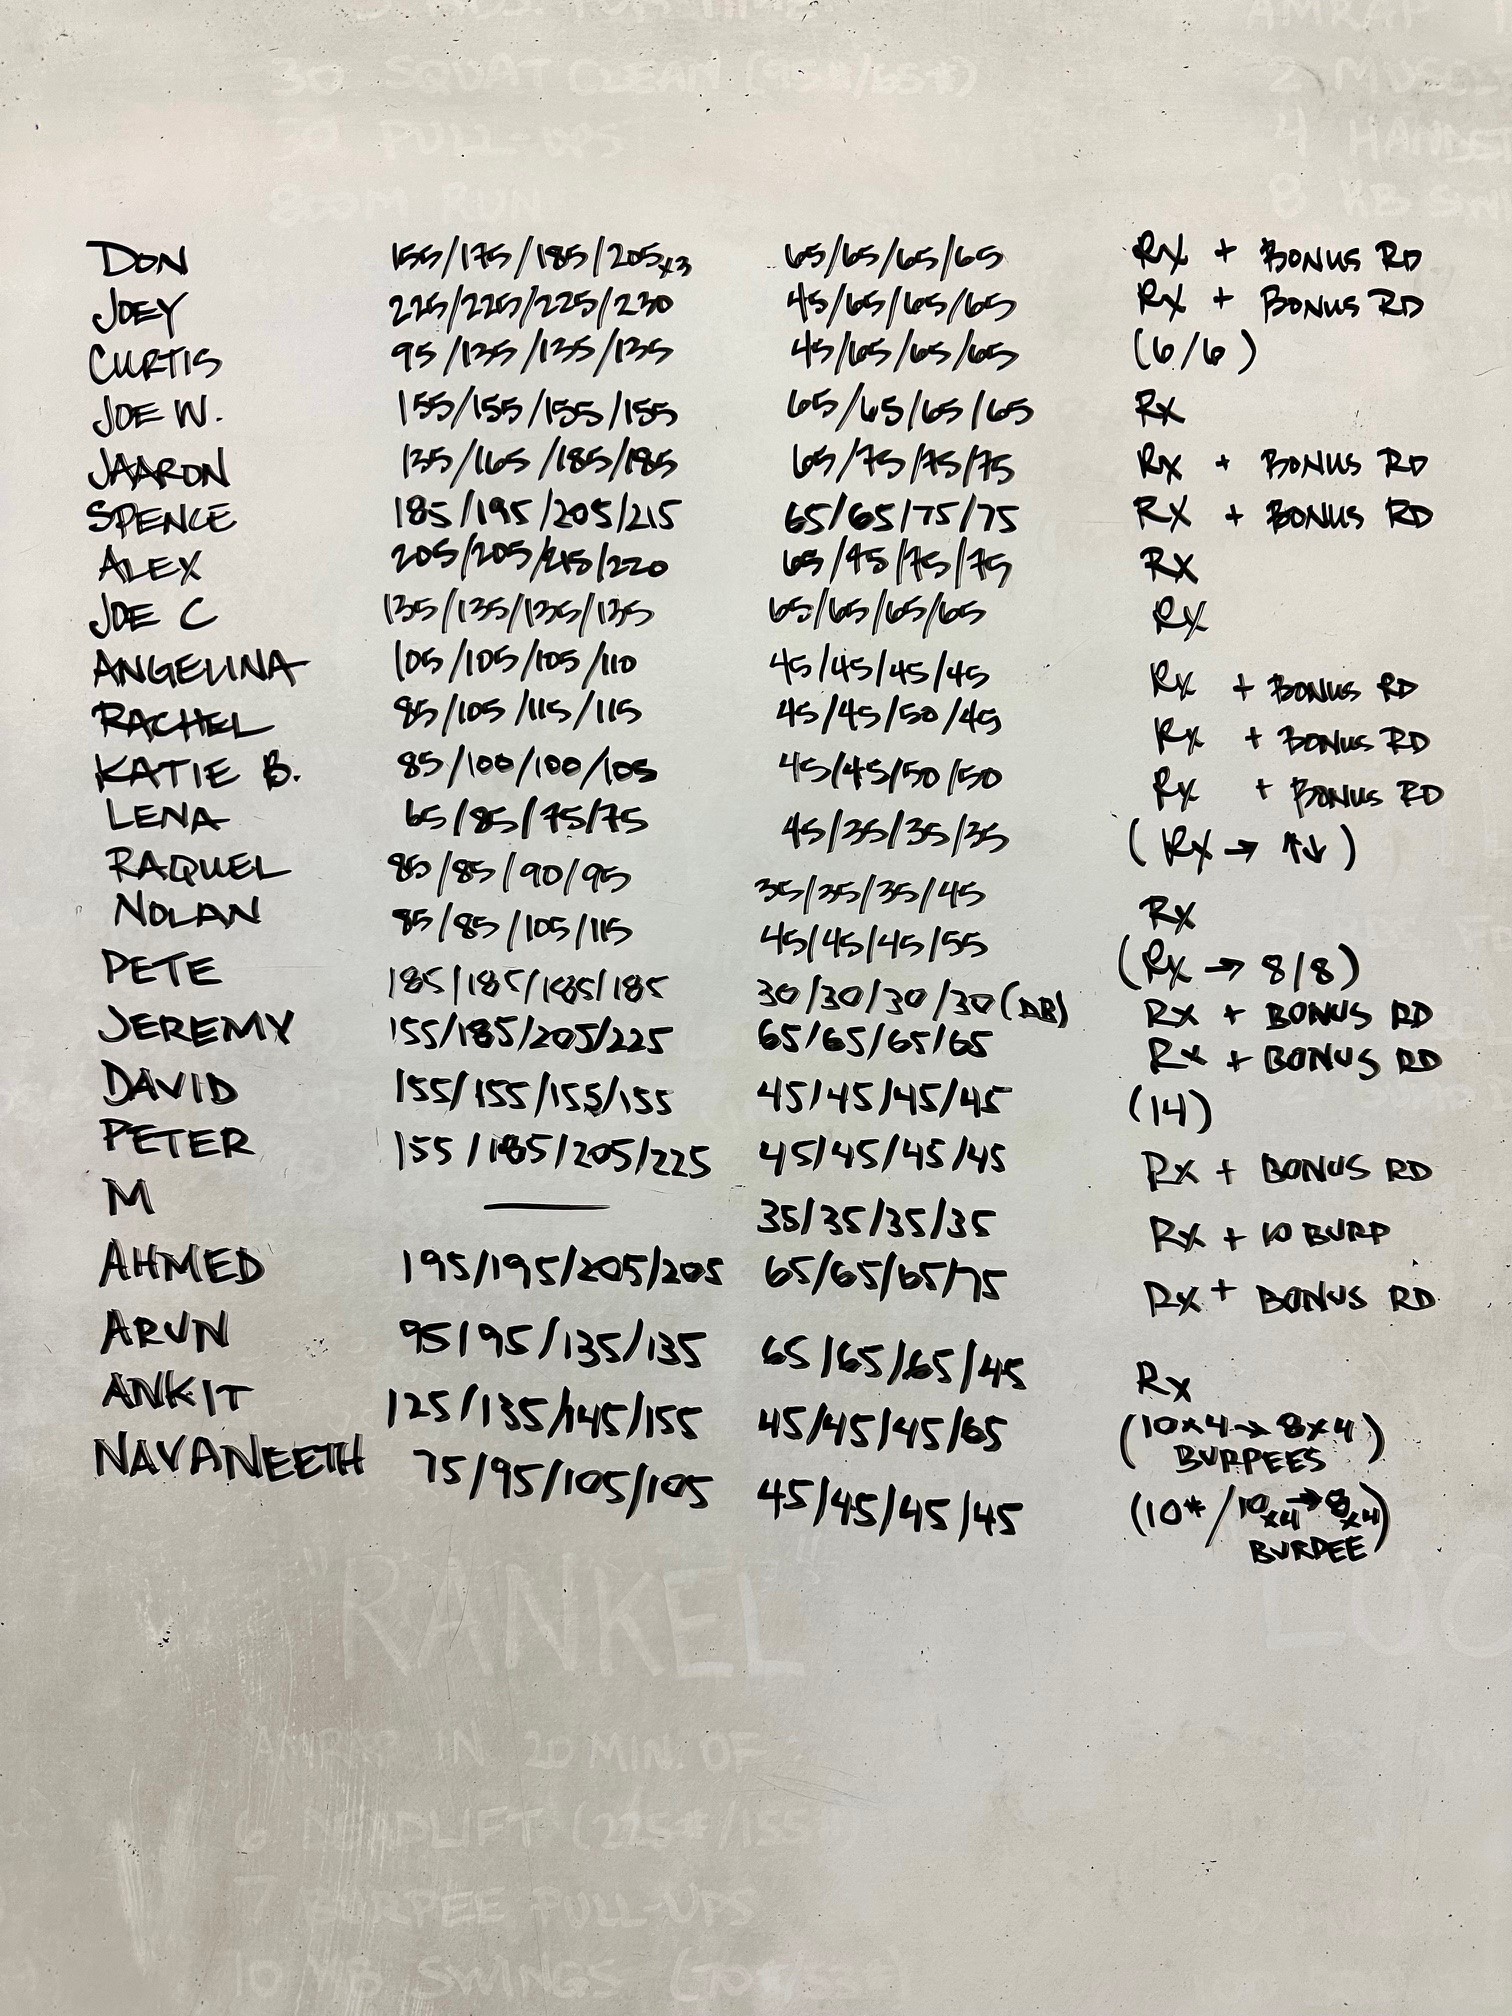 30 SQUAT CLEAN (95#/65#)
30 PULL-UPS
800M RUN
AMRAP
2 MUSCLE
4 HANDST
8 KB SW
DON 155/175/185/205x3 65/65/65/65 RX + BONUS RD
JOEY 225/225/225/230 45/65/65/65 RX + BONUS RD
CURTIS 95/135/135/135 45/65/65/65 (6/6)
JOE W. 155/155/155/155 65/65/65/65 RX
JAARON 135/165/185/185 65/75/75/75 RX + BONUS RD
SPENCE 185/195/205/215 65/65/75/75 RX + BONUS RD
ALEX 205/205/215/220 65/95/75/75 RX
JOE C 135/135/135/135 65/65/65/65 RX
ANGELINA 105/105/105/110 45/45/45/45 RX + BONUS RD
RACHEL 85/105/115/115 45/45/50/45 RX + BONUS RD
KATIE B. 85/100/100/105 45/45/50/50 RX + BONUS RD
LENA 65/85/75/75 45/35/35/35 (RX → ↑↓)
RAQUEL 85/85/90/95 35/35/35/45 RX
NOLAN 85/85/105/115 45/45/45/55 (RX → 8/8)
PETE 185/185/185/185 30/30/30/30 (DB) RX + BONUS RD
JEREMY 155/185/205/225 65/65/65/65 RX + BONUS RD
DAVID 155/155/155/155 45/45/45/45 (14)
PETER 155/185/205/225 45/45/45/45 RX + BONUS RD
M — 35/35/35/35 RX + 10 BURP
AHMED 195/195/205/205 65/65/65/75 RX + BONUS RD
ARUN 95/95/135/135 65/65/65/45 RX
ANKIT 125/135/145/155 45/45/45/65 (10x4 → 8x4)
BURPEES
NAVANEETH 75/95/105/105 45/45/45/45 (10#/10x4 → 8x4)
BURPEE
"RANKEL"
AMRAP IN 20 MIN. OF
6 DEADLIFT (225#/155#)
7 BURPEE PULL-UPS
10 KB SWINGS (70#/53#)